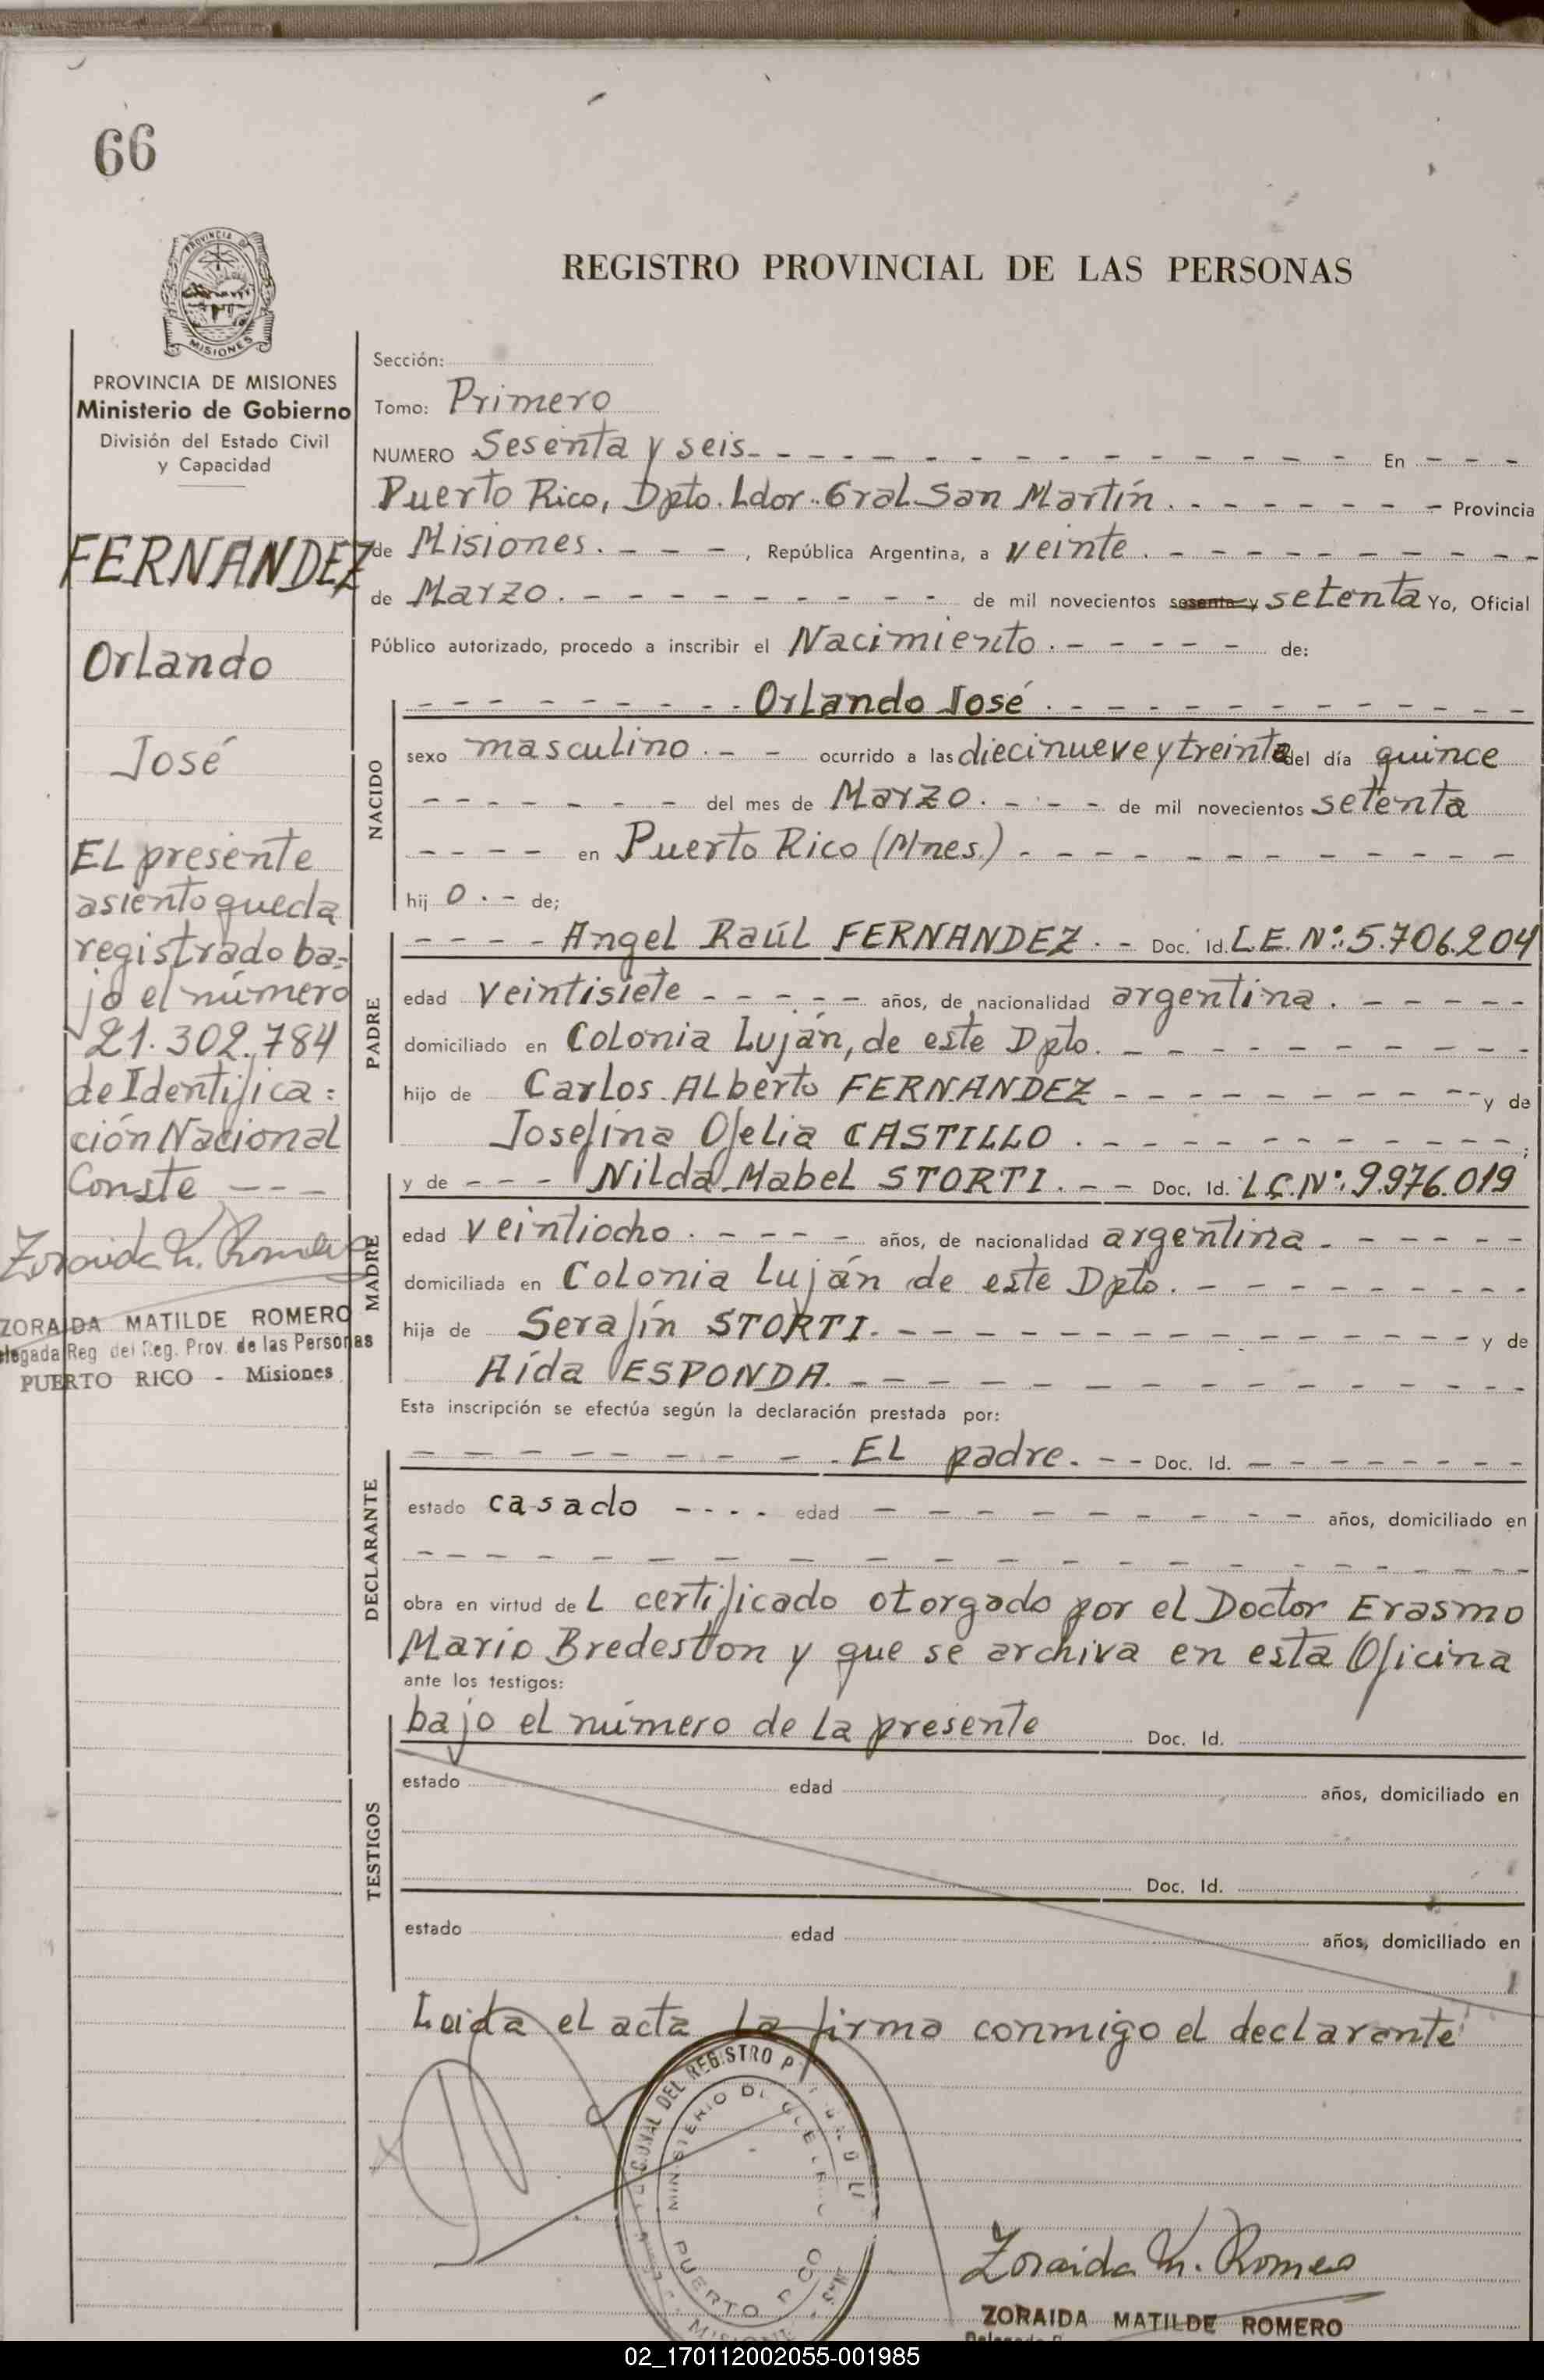 66
PROVINCIA DE
MISIONES
REGISTRO PROVINCIAL DE LAS PERSONAS
PROVINCIA DE MISIONES
Ministerio de Gobierno
División del Estado Civil
y Capacidad
FERNANDEZ
Orlando
José
EL presente
asiento queda
registrado ba=
jo el número
21.302.784
de Identifica=
ción Nacional
Conste ---
Zoraida M. Romero
ZORAIDA MATILDE ROMERO
Delegada Reg del Reg. Prov. de las Personas
PUERTO RICO - Misiones
Sección:
Tomo: Primero
NUMERO Sesenta y seis- - - - - - - - - - - - En - - -
Puerto Rico, Dpto. Ldor. Gral San Martín. - - - - - - Provincia
de Misiones. - - -, República Argentina, a veinte. - - - - - - - -
de Marzo. - - - - - - - - de mil novecientos sesenta y setenta Yo, Oficial
Público autorizado, procedo a inscribir el Nacimiento. - - - - - de:
NACIDO
- - - - - - - - Orlando José. - - - - - - - - - -
sexo masculino. - - ocurrido a las diecinueve y treinta del día quince
- - - - - - - del mes de Marzo. - - - de mil novecientos setenta
- - - - en Puerto Rico (Mnes.) - - - - - - - - - -
hij o. - de;
PADRE
- - - - Angel Raúl FERNANDEZ. - Doc. Id. L.E. Nº: 5.706.204
edad veintisiete - - - - - años, de nacionalidad argentina. - - - - -
domiciliado en Colonia Luján, de este Dpto. - - - - - - - - -
hijo de Carlos ALberto FERNANDEZ - - - - - - - - y de
Josefina Ofelia CASTILLO. - - - - - - - - - - ;
MADRE
y de - - - Nilda Mabel STORTI. - - Doc. Id. L.C. Nº: 9.976.019
edad veintiocho. - - - - años, de nacionalidad argentina - - - - - -
domiciliada en Colonia Luján de este Dpto. - - - - - - - -
hija de Serafín STORTI. - - - - - - - - - - - - y de
Aída ESPONDA. - - - - - - - - - - - - -
Esta inscripción se efectúa según la declaración prestada por:
DECLARANTE
- - - - - - - - - EL padre. - - Doc. Id. - - - - - - -
estado casado - - - - edad - - - - - - - - - años, domiciliado en
- - - - - - - - - - - - - - - - - - - -
obra en virtud de L certificado otorgado por el Doctor Erasmo
Mario Bredeston y que se archiva en esta Oficina
ante los testigos:
TESTIGOS
bajo el número de la presente Doc. Id.
estado edad años, domiciliado en
Doc. Id.
estado edad años, domiciliado en
Leida el acta la firma conmigo el declarante
MINISTERIO DE
PUERTO RICO
Zoraida M. Romero
ZORAIDA MATILDE ROMERO
02_170112002055-001985